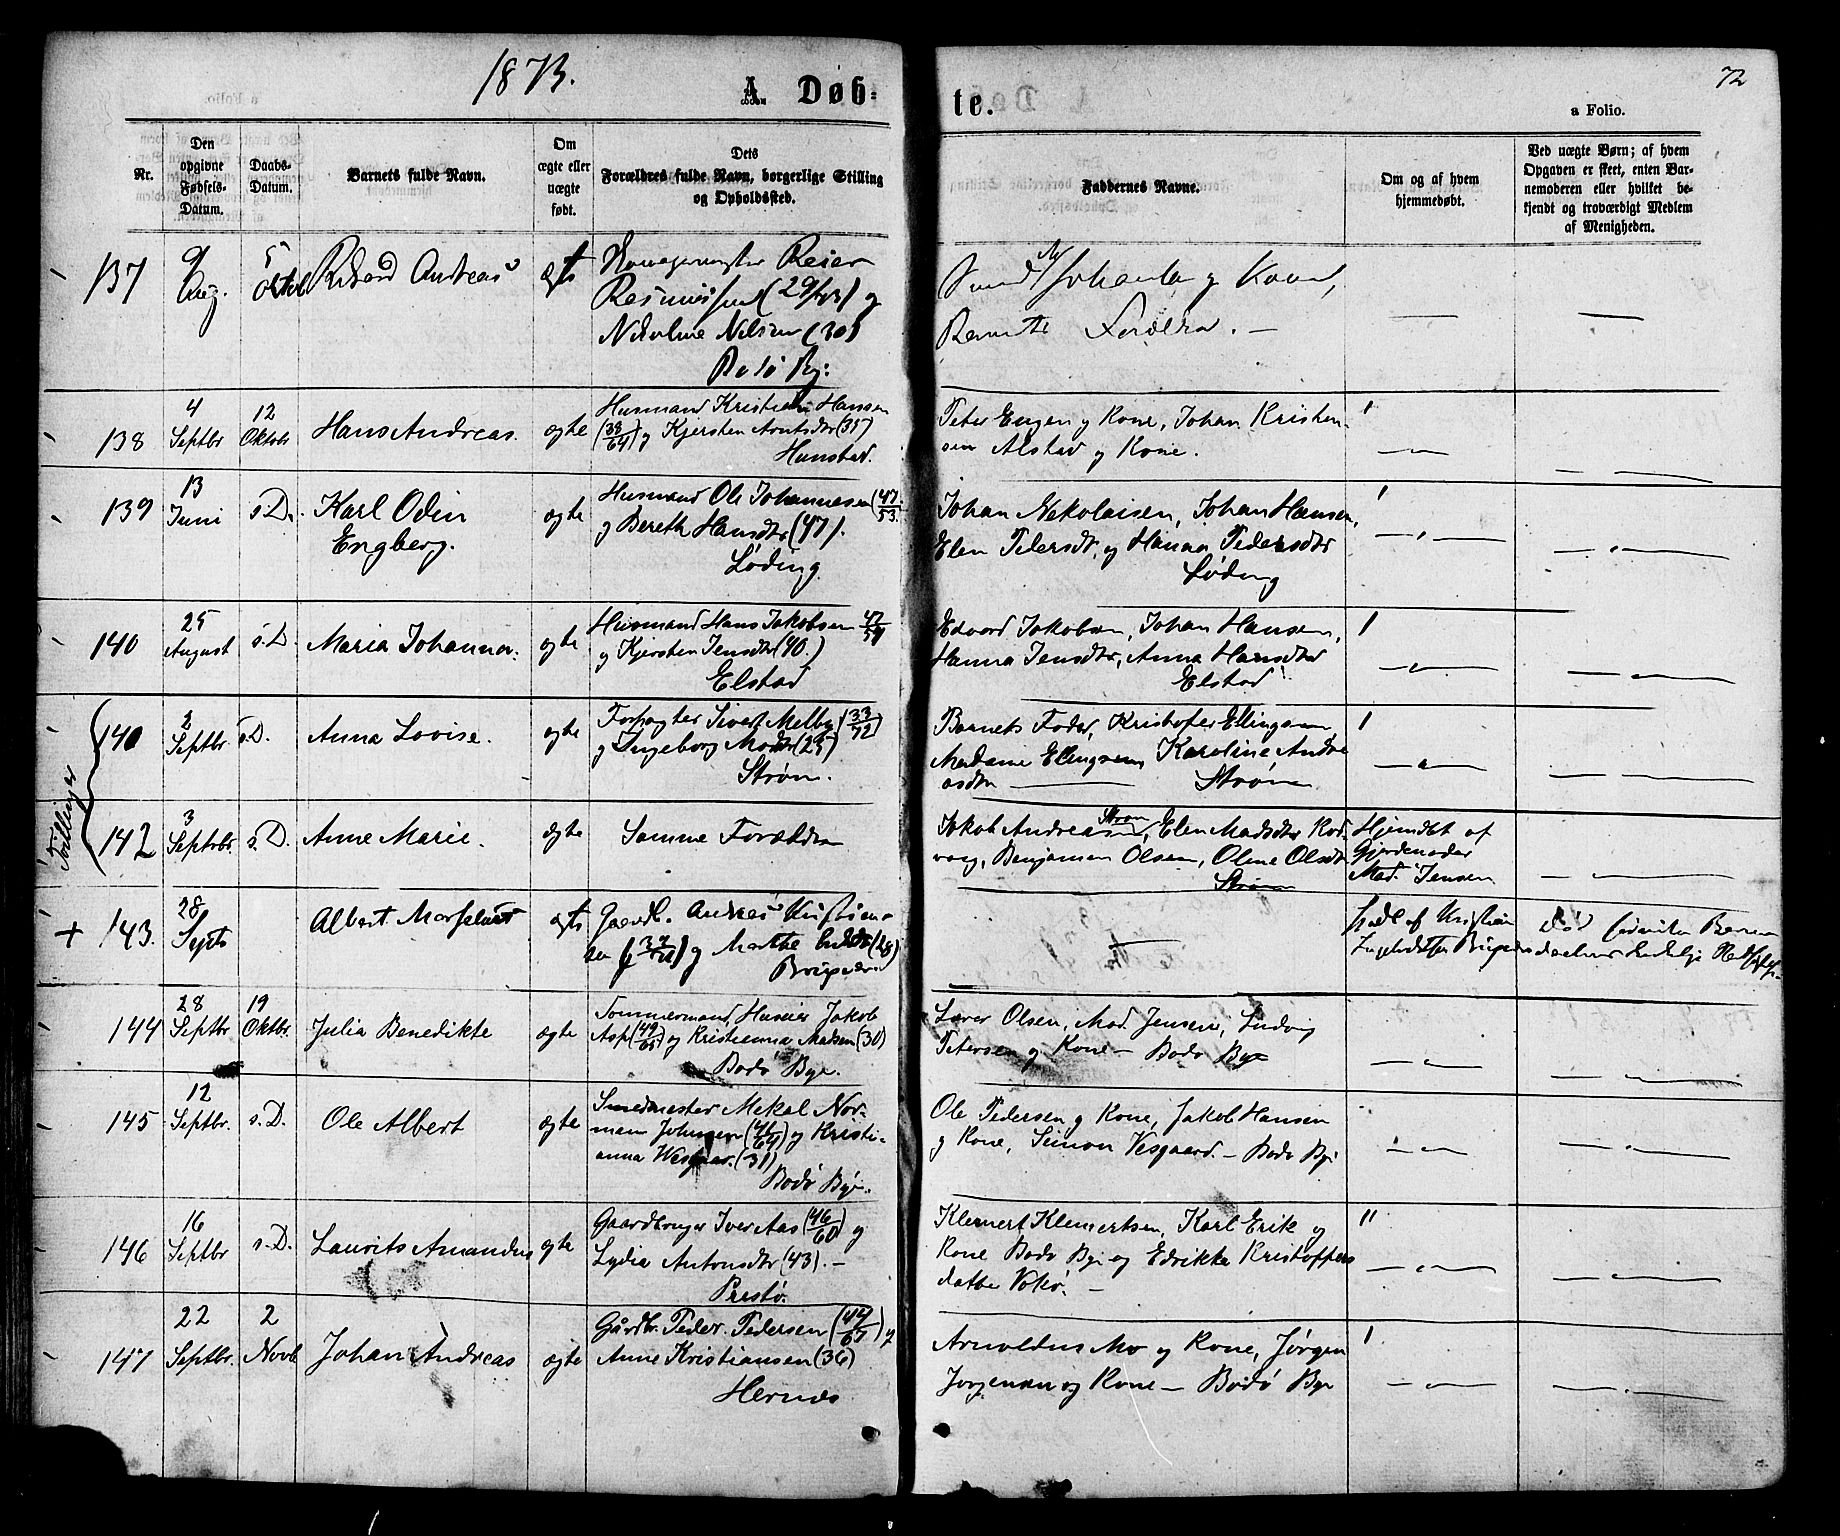 1873.
A Døb-
te.
72
a Folio.
Nr.
Den
opgivne
Fødsels-
Datum.
Daabs-
Datum.
Barnets fulde Navn.
Om
ægte eller
uægte
født.
Dets
Forældres fulde Navn, borgerlige Stilling
og Opholdssted.
Faddernes Navne.
Om og af hvem
hjemmedøbt.
Ved uægte Børn; af hvem
Opgaven er skeet, enten Bar-
nemoderen eller hvilket be-
kjendt og troværdigt Medlem
af Menigheden.
137
9
Aug.
5
Oktob
Rikard Andreas
ægte
Reier
Rasmussen (29/43) og
Nikoline Nilsen (30)
Bodø By:
138
4
Septbr
12
Oktobr
Hans Andreas.
ægte
Husmand Kristian Hansen
(38/64) og Kjersten Arntsdtr (35)
Hunstad.
Peter Engen og Kone, Johan Kristen-
sen Alstad og Kone.
139
13
Juni
s.D.
Karl Odin
Engberg.
ægte
Husmand Ole Johannesen (47/53.
og Bereth Hansdtr (47).
Løding
Johan Nikolaisen, Johan Hansen,
Elen Pedersdt. og Hanna Pedersdtr
Løding
140
25
August
s.D
Maria Johanna.
ægte
Husmand Hans Jakobsen 47/54
og Kjersten Jensdtr (40.)
Elstad
Edvard Jakobsen, Johan Hansen,
Hanna Jensdtr, Anna Hansdtr
Elstad
Tvillinger
141
2
Septbr.
s.D.
Anna Lovise.
ægte
Forpagter Sivert Melby (33/72)
og Ingeborg Madsdtr (25)
Strøm.
Barnets Fader, Kristofer Ellingsen,
Madame Ellingsen, Karoline Andre
asdtr — Strøm
142
3
Septbr.
s.D.
Anne Marie.
ægte
Samme Forældre
Jakob Andreasen Strøm, Elen Madsdtr Kod-
vaag, Benjamin Olsen, Oline Olsdtr
Strøm
Hjemdbt af
Gjordemoder
Mad. Jensen
+ 143.
28
Septb
Albert
ægte
Gaardb. Andreas Kristian-
sen og Marthe (28)
hjdbt af Kristian
144
28
Septbr
19
Oktbr.
Julia Benedikte
ægte
Tømmermand, Huseier Jakob
Asp (49/65) og Kristianna Madsen (30)
Bodø Bye.
Lærer Olsen, Mad. Jensen, Ludvig
Petersen og Kone — Bodø Bye
145
12
Septbr.
s.D.
Ole Albert
ægte
Smedmester Mekal Nor-
mann Johnsen (41/64) og Kristi-
anna Wesgaar. (31)
Bodø Bye.
Ole Pedersen og Kone, Jakob Hansen
og Kone, Simon Vesgaard. — Bodø Bye
146
16
Septbr
s.D.
Laurits Amandus
ægte
Gaardbruger Iver Aas (46/60) og
Lydia Antonsdtr (43). —
Prestø.
Klemert Klemertsen, Karl Erik og
Kone Bodø Bye og Edrikke Kristoffers
datter Vokø. —
147
22
Septbr.
2
Novb
Johan Andreas
ægte
Gårdbr. Peder Pedersen (44/67) og
Anne Kristiansen (36)
Hernes
Arnoldus Mo og Kone, Jørgen
Jørgensen og Kone — Bodø Bye